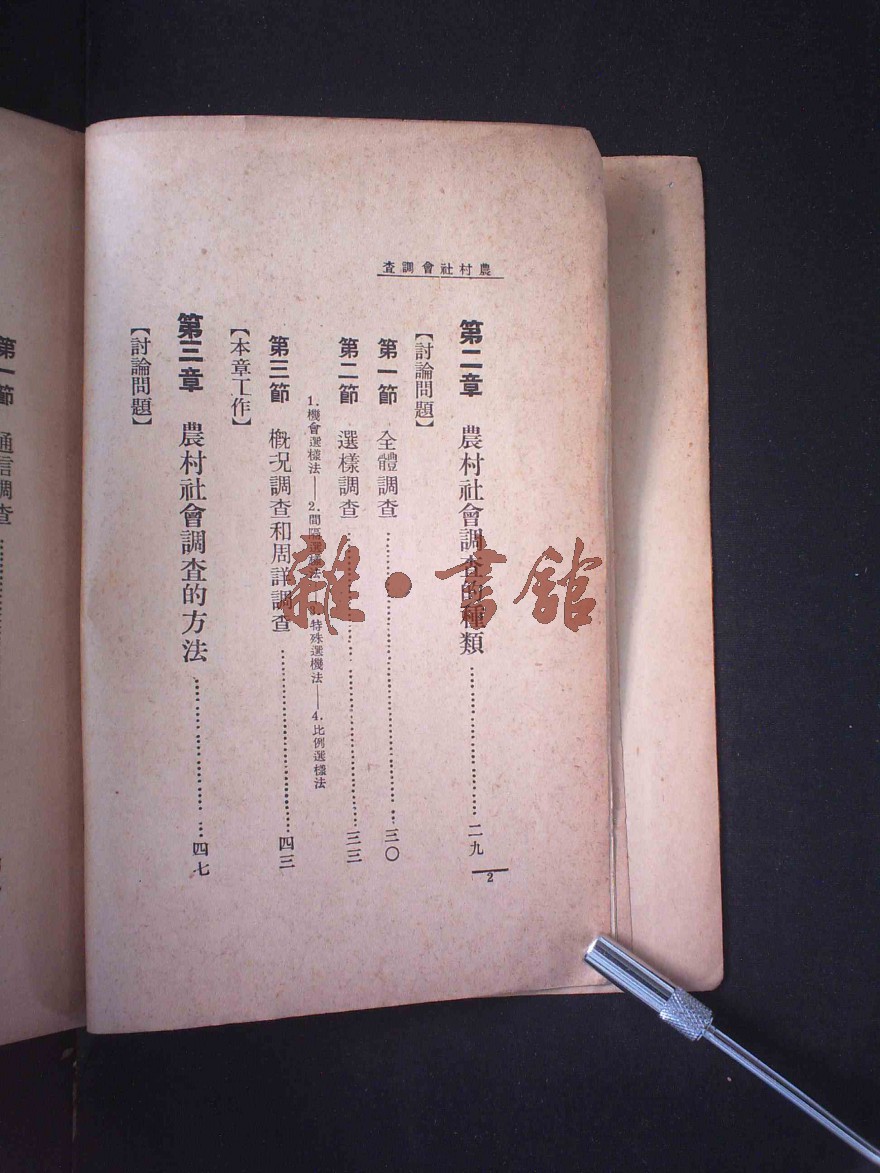 農村社會調查
第二章 農村社會調查的種類……二九
【討論問題】
第一節 全體調查……三〇
第二節 選樣調查……三三
1.機會選樣法——2.間隔選樣法——3.特殊選機法——4.比例選樣法
第三節 概况調查和周詳調查……四三
【本章工作】
第三章 農村社會調查的方法……四七
【討論問題】
2
第一節 通信調查……
雜·書館